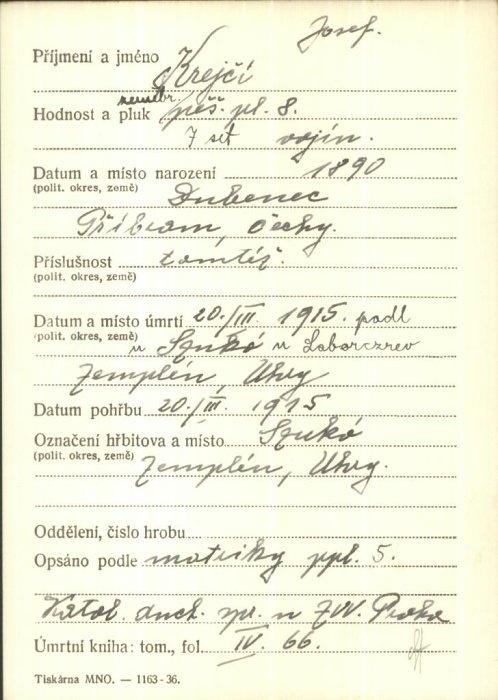 Josef.
Příjmení a jméno Krejčí
zeměbr.
Hodnost a pluk pěš. pl. 8.
7 set vojín.
Datum a místo narození 1890
(polit. okres, země) Dubenec
Příbram, Čechy.
Příslušnost tamtéž.
(polit. okres, země)
Datum a místo úmrtí 20./III. 1915. padl
(polit. okres, země) u Szukó u Laborczrev
Zemplén, Uhry
Datum pohřbu 20./III. 1915
Označení hřbitova a místo Szukó
(polit. okres, země) Zemplén, Uhry.
Oddělení, číslo hrobu
Opsáno podle matriky ppl. 5.
Katol. duch. spr. u ZVV. Praha
Úmrtní kniha: tom., fol. IV. 66.
Tiskárna MNO. — 1163-36.